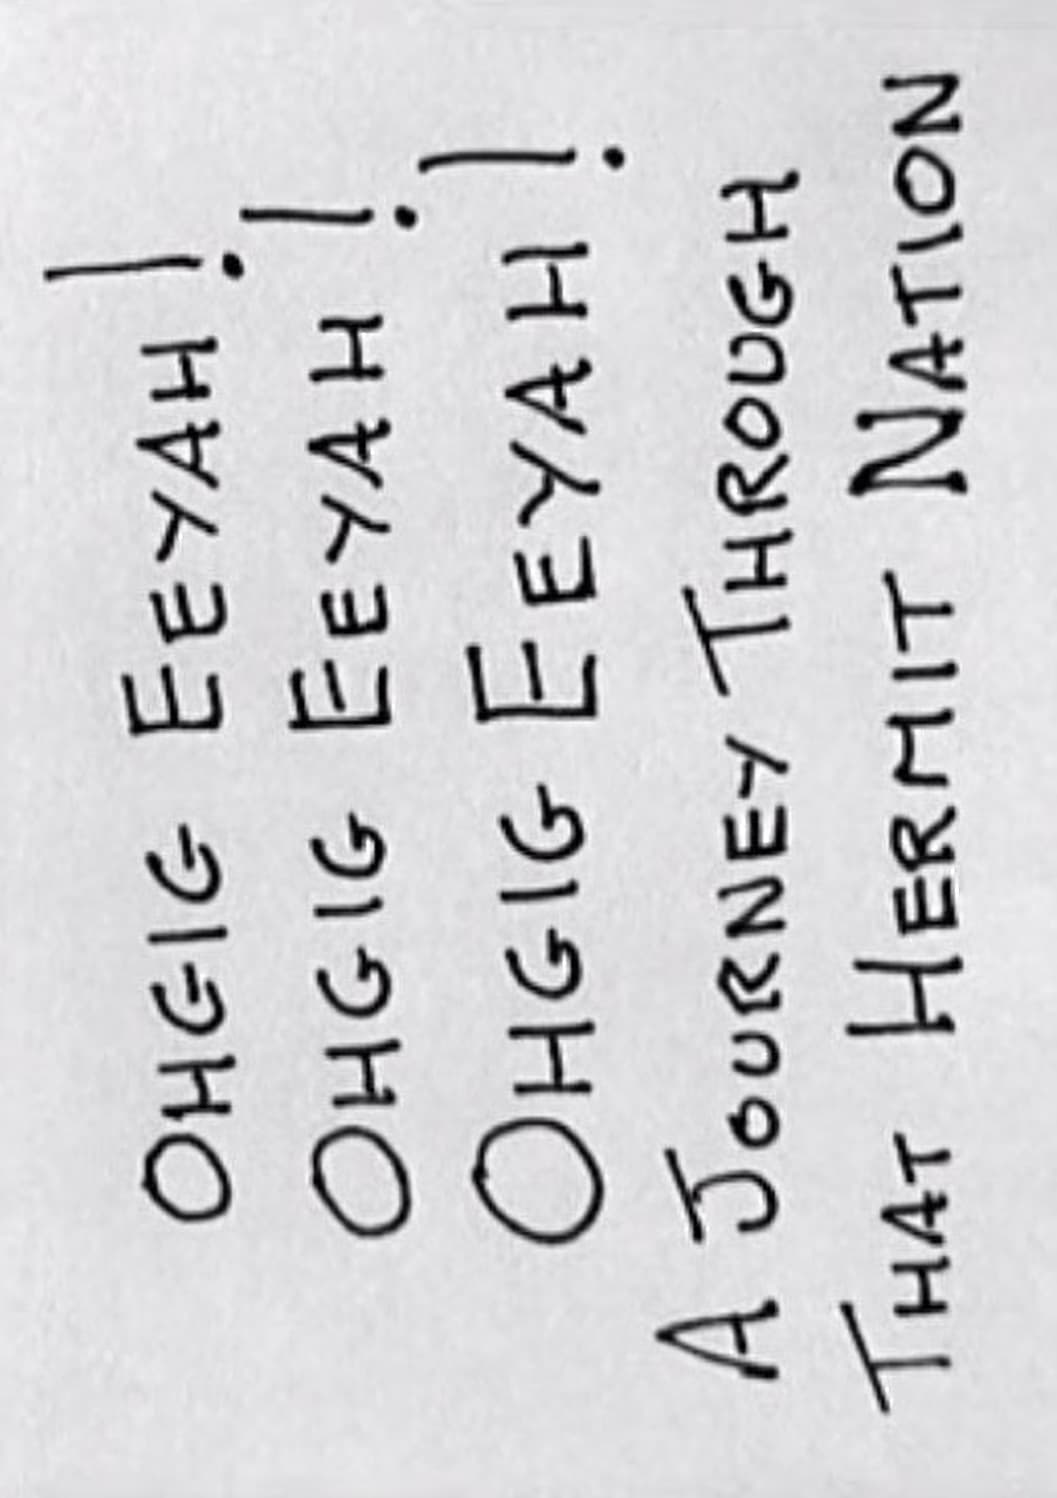 OHGIG EEYAH!
OHGIG EEYAH!
OHGIG EEYAH!
A JOURNEY THROUGH
THAT HERMIT NATION